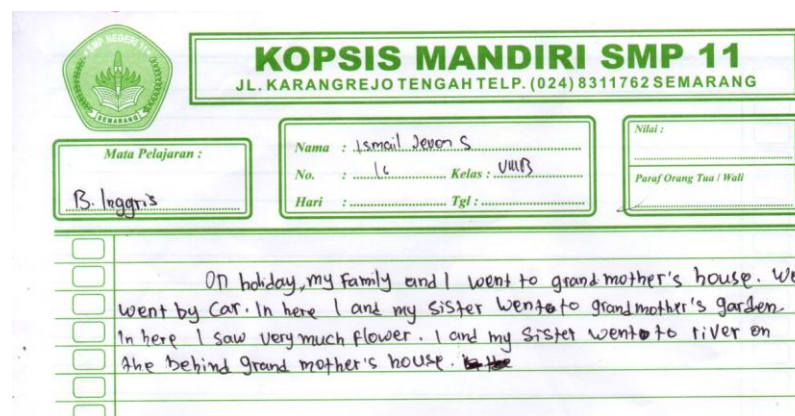 SMP NEGERI 11
SEMARANG
KOPSIS MANDIRI SMP 11
JL. KARANGREJO TENGAH TELP. (024) 8311762 SEMARANG
Mata Pelajaran :
B. Inggris
Nama : Ismail Jevon S
No. : 16 Kelas : VIIIB
Hari : Tgl :
Nilai :
Paraf Orang Tua / Wali
On holiday, my Family and I went to grand mother's house. We
went by Car. In here I and my sister went to grandmother's garden.
In here I saw very much flower. I and my sister went to river on
the behind grand mother's house.